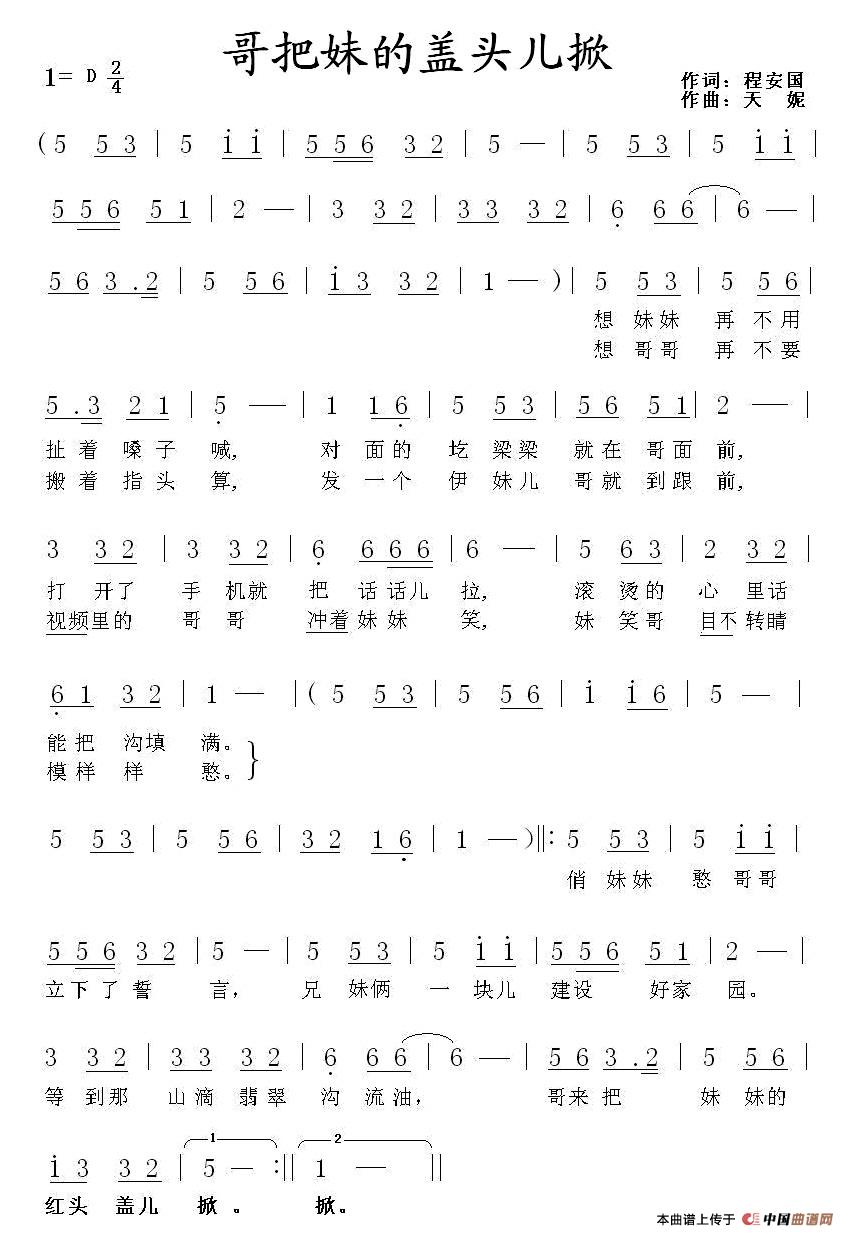 哥把妹的盖头儿掀
1= D 2/4
作词：程安国
作曲：天 妮
(5 53 | 5 i̇i̇ | 556 32 | 5 — | 5 53 | 5 i̇i̇ |
556 51 | 2 — | 3 32 | 33 32 | 6̣ 66 | 6 — |
56 3.2 | 5 56 | i̇3 32 | 1 — )| 5 53 | 5 56 |
想 妹妹 再 不用
想 哥哥 再 不要
5.3 21 | 5̣ — | 1 16̣ | 5 53 | 56 51 | 2 — |
扯着 嗓子 喊, 对 面的 圪 梁梁 就在 哥面 前,
搬着 指头 算, 发 一个 伊 妹儿 哥就 到跟 前,
3 32 | 3 32 | 6̣ 666 | 6 — | 5 63 | 2 32 |
打 开了 手 机就 把 话话儿 拉, 滚 烫的 心 里话
视频里的 哥 哥 冲着妹妹 笑, 妹 笑哥 目不转睛
6̣1 32 | 1 — |(5 53 | 5 56 | i̇ i̇6 | 5 — |
能把 沟填 满。
模样 样 憨。
5 53 | 5 56 | 32 16̣ | 1 — )‖: 5 53 | 5 i̇i̇ |
俏 妹妹 憨 哥哥
556 32 | 5 — | 5 53 | 5 i̇i̇ | 556 51 | 2 — |
立下了誓 言, 兄 妹俩 一 块儿 建设 好家 园。
3 32 | 33 32 | 6̣ 66 | 6 — | 56 3.2 | 5 56 |
等 到那 山滴 翡翠 沟 流油, 哥来把 妹 妹的
i̇3 32 | 1 5 — :‖ 2 1 — ‖
红头 盖儿 掀。 掀。
本曲谱上传于 中国曲谱网